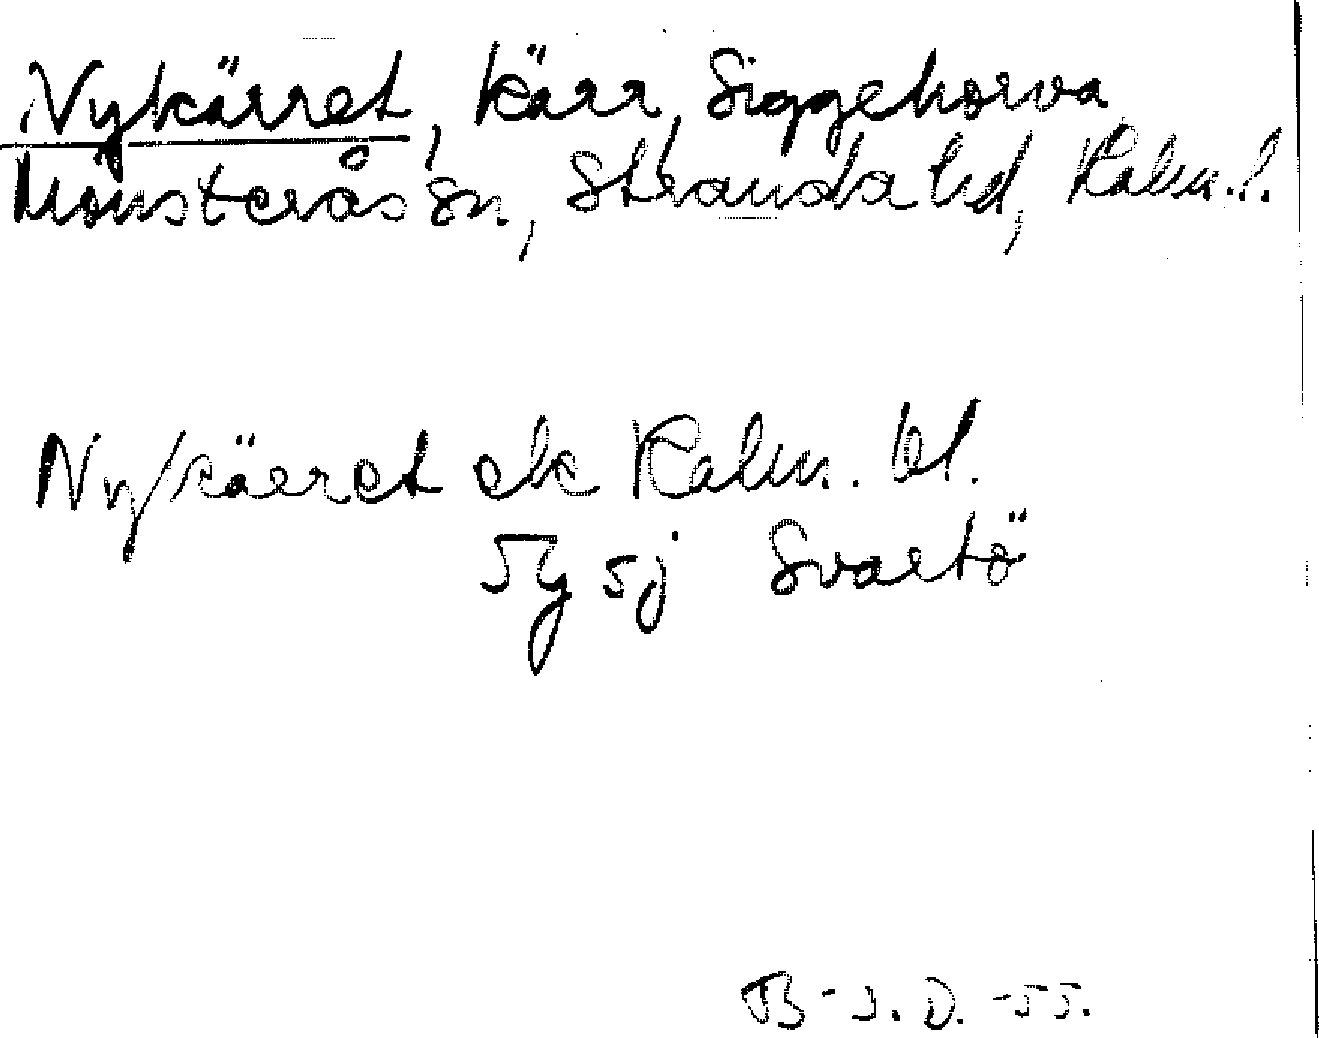 Nykärret, kärr, Siggehorva
Mönsterås sn, Stranda hd, Kalm. l.
Nykärret ek Kalm. bl.
5g sj Svartö
B-J. D. -55.